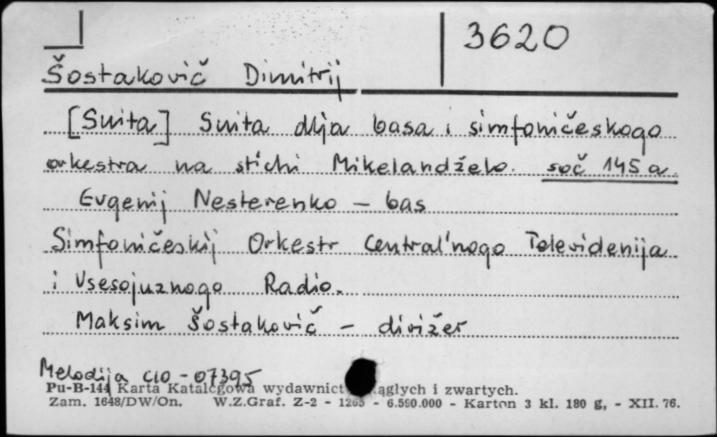 3620
Šostakovič Dimitrij
[Suita] Suita dlja basa i simfoničeskogo
orkestra na stichi Mikelandželo. soč 145 a
Evgenij Nesterenko – bas
Simfoničeskij Orkestr Central'nogo Televidenija
i Vsesojuznogo Radio.
Maksim Šostakovič – dirižer
Melodija C10-07395
Pu-B-144 Karta Katalogowa wydawnict ągłych i zwartych.
Zam. 1648/DW/On. W.Z.Graf. Z-2 - 1265 - 6.590.000 - Karton 3 kl. 180 g, - XII. 76.